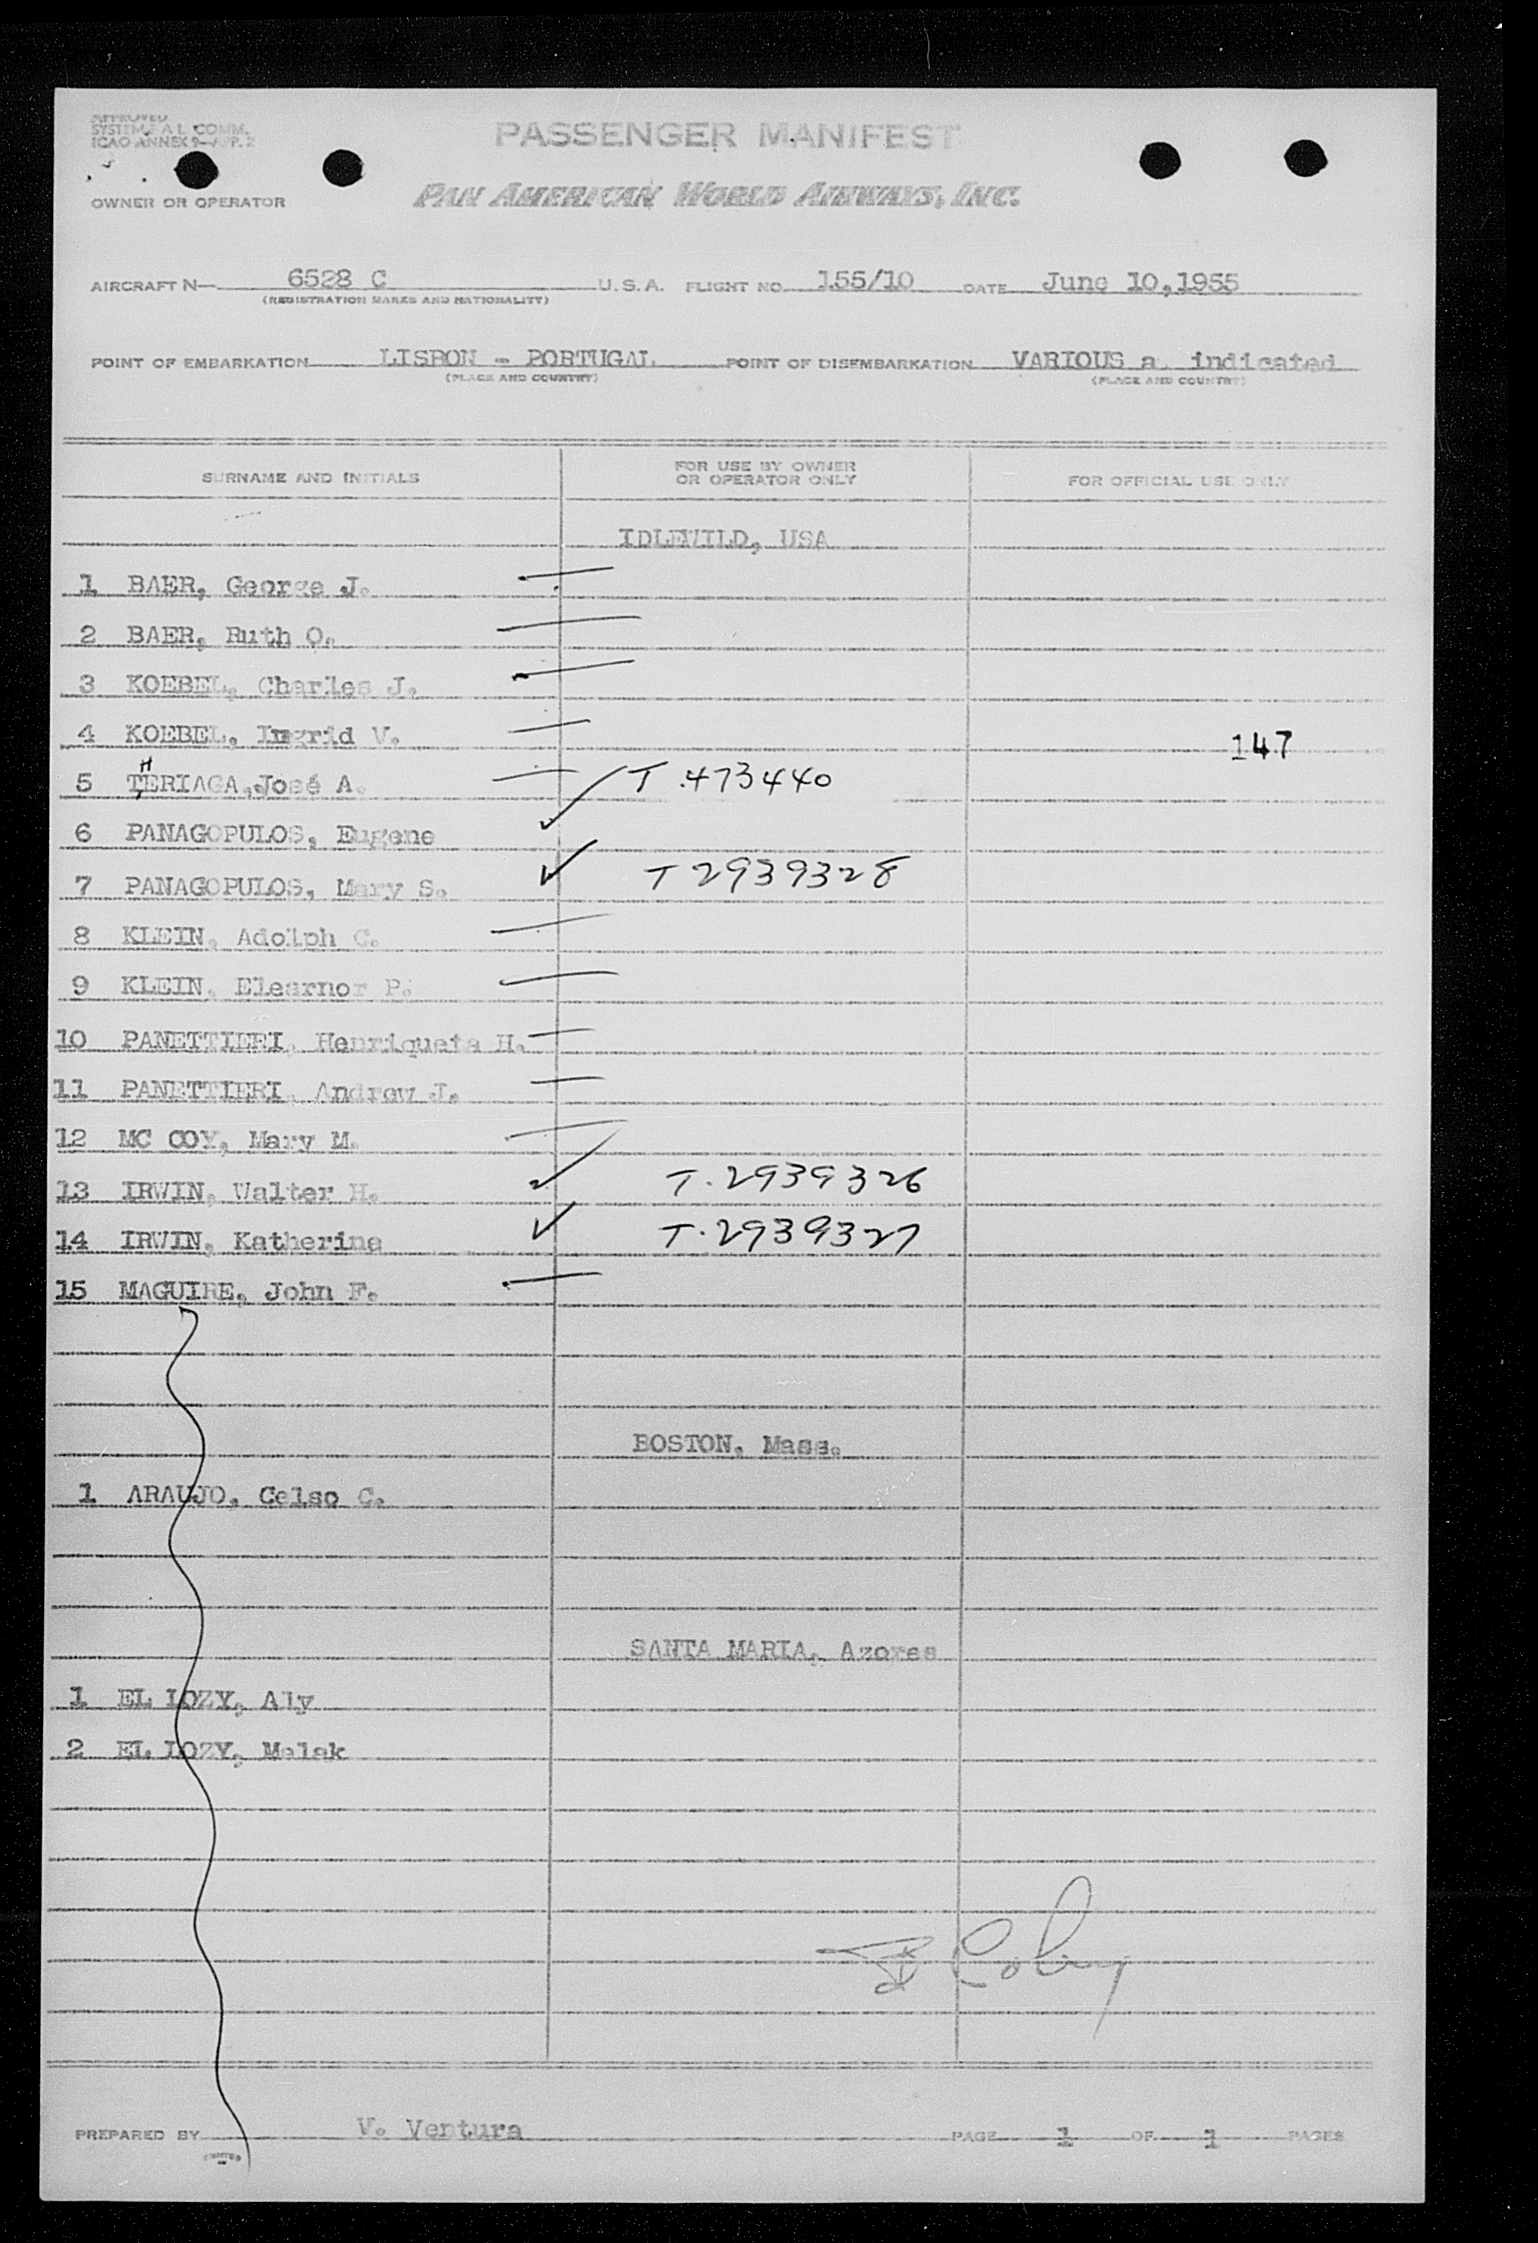 APPROVED
SYSTEMS A L COMM.
ICAO ANNEX 9—APP. 2
PASSENGER MANIFEST
OWNER OR OPERATOR PAN AMERICAN WORLD AIRWAYS, INC.
AIRCRAFT N— 6528 C U.S.A. FLIGHT NO. 155/10 DATE June 10,1955
(REGISTRATION MARKS AND NATIONALITY)
POINT OF EMBARKATION LISBON - PORTUGAL POINT OF DISEMBARKATION VARIOUS a indicated
(PLACE AND COUNTRY) (PLACE AND COUNTRY)
SURNAME AND INITIALS FOR USE BY OWNER OR OPERATOR ONLY FOR OFFICIAL USE ONLY
IDLEWILD, USA
1 BAER, George J.
2 BAER, Ruth O.
3 KOEBEL, Charles J.
4 KOEBEL, Ingrid V. 147
5 THERIAGA, José A. T.473440
6 PANAGOPULOS, Eugene
7 PANAGOPULOS, Mary S. T 2939328
8 KLEIN, Adolph C.
9 KLEIN, Elearnor P.
10 PANETTIERI, Henriqueta H.
11 PANETTIERI, Andrew J.
12 MC COY, Mary M.
13 IRWIN, Walter H. T.2939326
14 IRWIN, Katherine T.2939327
15 MAGUIRE, John F.
BOSTON, Mass.
1 ARAUJO, Celso C.
SANTA MARIA, Azores
1 EL LOZY, Aly
2 EL LOZY, Malak
PREPARED BY V. Ventura PAGE 1 OF 1 PAGES